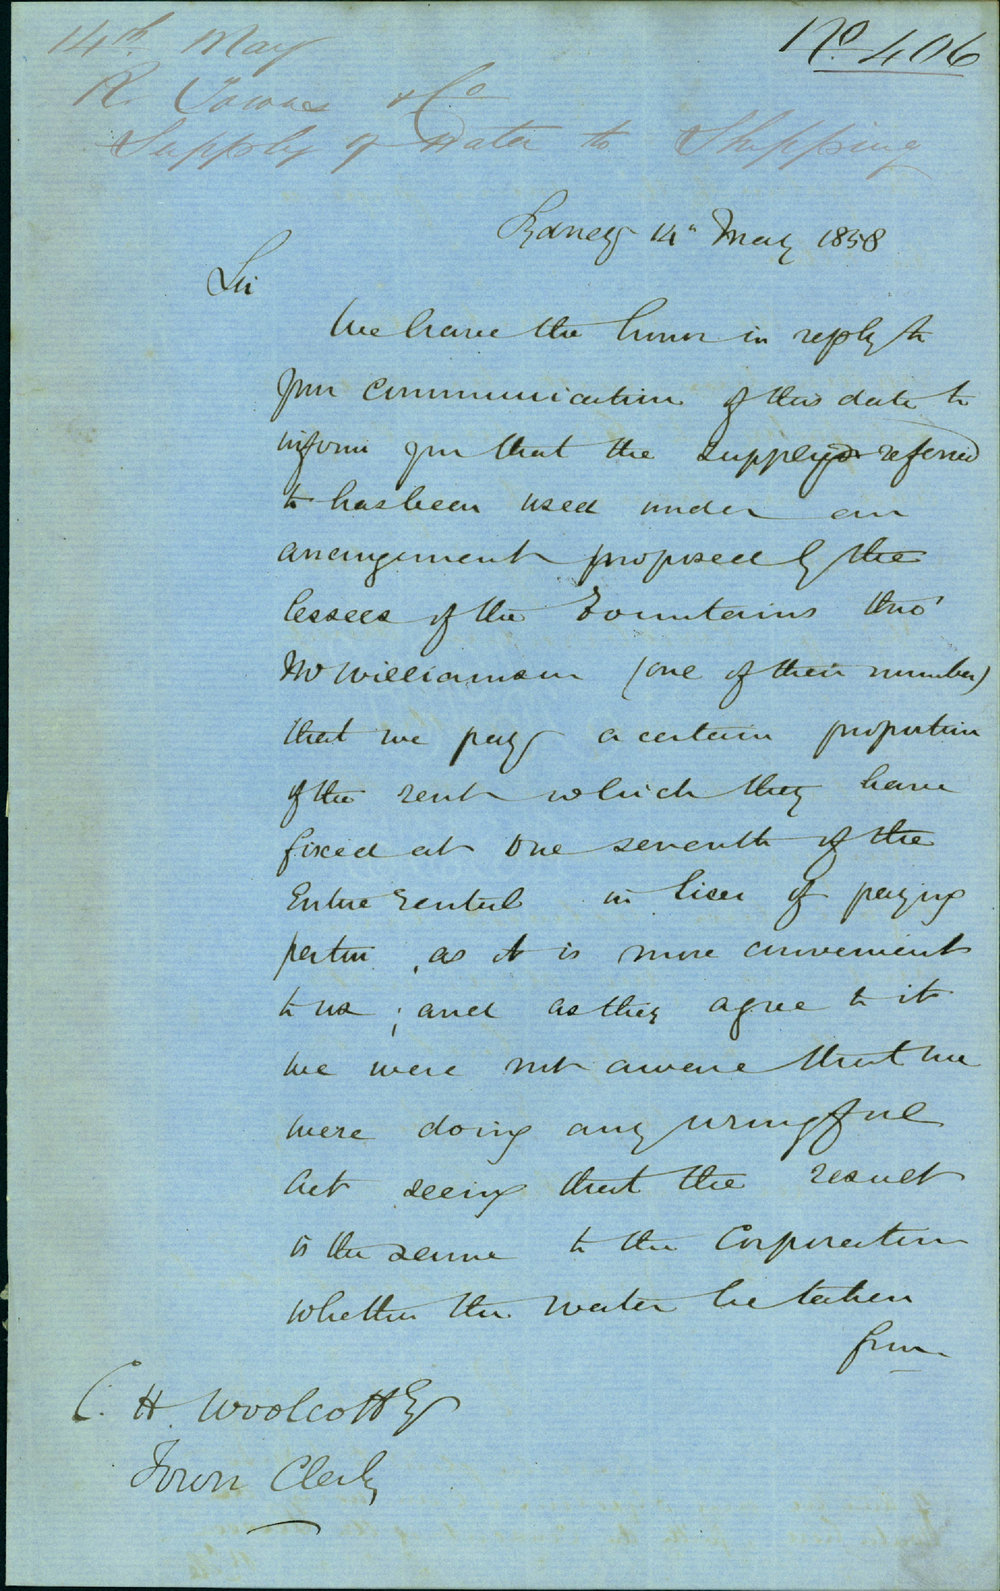 14th. May
No. 406
R. Towns & Co
Supply of Water to Shipping
Sydney 14" May 1858
Sir
We have the honor in reply to
your communication of this date to
inform you that the supply referred
to has been used under an
arrangement proposed by the
lessees of the Fountains thro'
Mr Williamson (one of their number)
that we pay a certain proportion
of the rent which they have
fixed at one seventh of the
Entire rental in lieu of paying
per tun, as it is more convenient
to us; and as they agree to it
we were not aware that we
were doing any wrongful
act seeing that the result
is the same to the Corporation
whether the water be taken
from
C. H. Woolcott Esq
Town Clerk